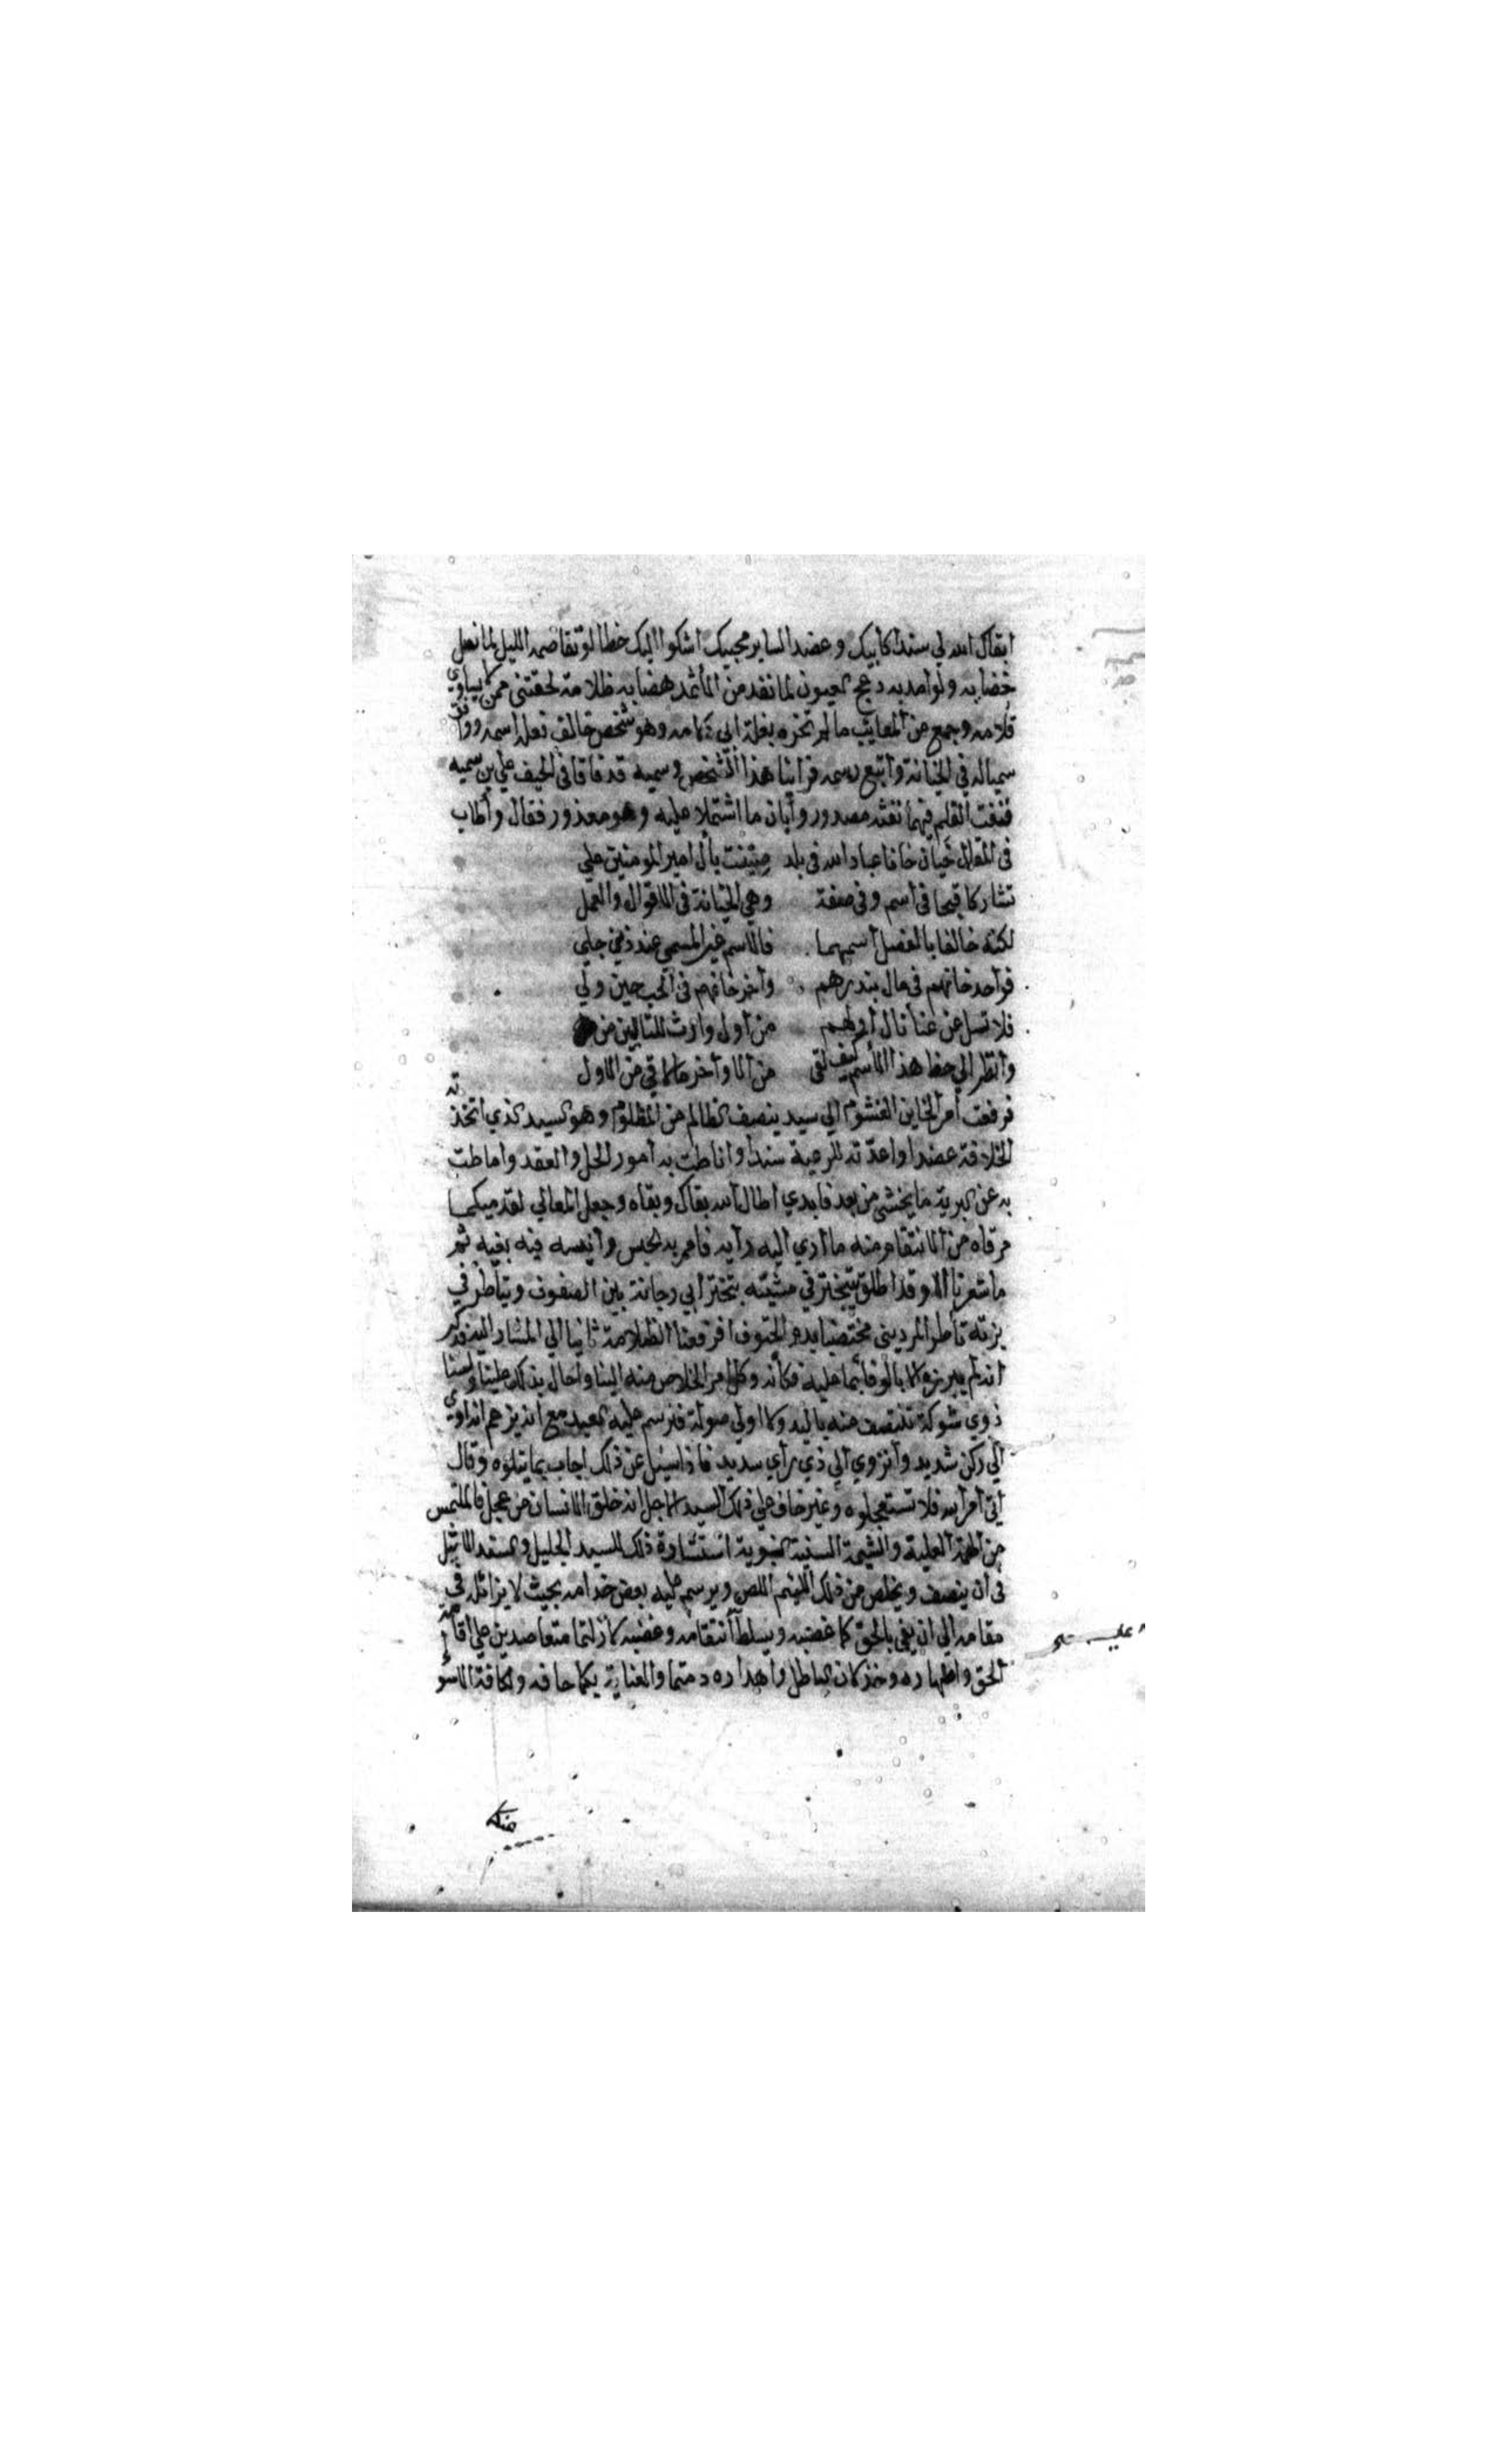 ابقاك الله لي سندا كابيك وعضدا لساير محبيك اشكوا اليك خطا لو تقاضمه الليل لما نصل
خضابه ولو امد به دعج العيون لما نفد من الأثمد هضابه ظلامة لحقتني ممن لا يساوي
قلامه وجمع من المعايب ما لم تحزه بغلة ابي دلامه وهو شخص خالف فعله اسمه ووافق
سمياله في الخيانة واتبع رسمه فراينا هذا الشخص وسميه قد فاقا في الحيف علي بن سميه
فنفث القلم فيهما نفثه مصدور وأبان ما اشتملا عليه وهو معذور فقال وأطاب
في المقال خيان خانا عباد الله في بلد صينت بأل امير المومنين علي
تشاركا قبحا في أسم وفي صفة وهي الخيانة في الاقوال والعمل
لكنه خالفا بالفصل أسمهما فالاسم غير المسمي عند ذهن جلي
فواحد خانهم في مال بندرهم وأخر خانهم في الحب حين ولي
فلا تسل عن عنا نال أولهم من أول وارث للتالين من
وأنظر الي حظ هذا الأسم كيف لقى من الأواخر ما لاقي من الاول
فرفعت أمر الخاين الغشوم الي سيد ينصف الظالم من المظلوم وهو السيد الذي اتخذته
الخلافة عضدا واعدته للرعية سندا واناطت به أمور الحل والعقد واماطت
به عن البرية ما يخشى من بعد فابدي اطال الله بقاك وبقاه وجعل المعالي لقدميكما
مرقاه من الانتقام منه ما أدي اليه رأيه فامر به لحبس وأنيسه فيه بغيه ثم
ما شعرنا الا وقد اطلق يتبختر في مشيته تبختر أبي دجانة بين الصفوف ويتأطر في
بزته تأطر المرديني مختضبا بدم الحتوف فرفعنا الظلامة ثانيا الي المشار اليه فذكر
انه لم يبرزه الا بالوفا بما عليه فكأنه وكل امر الخلاص منه الينا واحال بذلك علينا ولسنا
ذوي شوكة تنتصف منه باليد ولا اولي صولة فنرسم عليه العبيد مع انه يزعم انه اوي
الي ركن شديد وأنزوي ألي ذي رأي سديد فاذا سيل عن ذلك اجاب بما يتلوه وقال
أتي أمر الله فلا تستعجلوه وغير خاف علي ذلك السيد الاجل انه خلق الانسان من عجل فالملتمس
من الهمة العلية والشيمة السنية النبوية استشارة ذلك السيد الجليل والسند الاثيل
في أن ينصف ويخلص من ذلك اللص ويرسم عليه بعض خدامه بحيث لا يزائل في
مقامه الي ان يفي بالحق كما غصبه ويسلط أنتقامه وغضبه لا زلتما متعاضدين علي اقامة
الحق واظهاره وخذلان الباطل واهداره دمتما والعناية بكما حافه ولكافة الاسوا
منكما